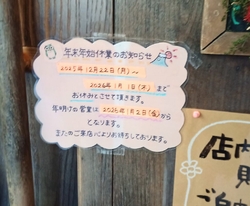 年末年始休業のお知らせ
2025年12月22日(月)～
2026年1月1日(木)まで
お休みとさせて頂きます。
年明けの営業は2026年1月2日(金)から
となります。
またのご来店心よりお待ちしております。
店内